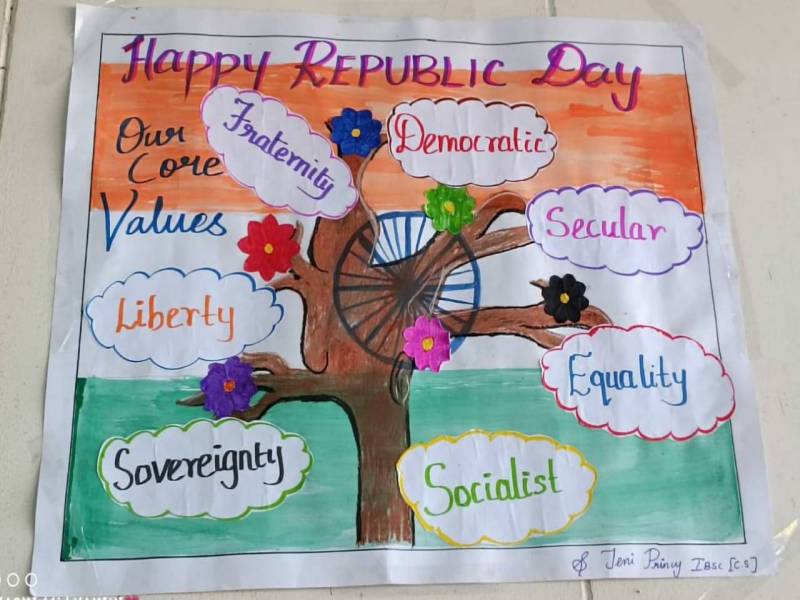 Happy REPUBLIC Day
Our
Core
Values
Fraternity
Democratic
Secular
Liberty
Equality
Sovereignty
Socialist
Jeni Princy I BSC [C.S]